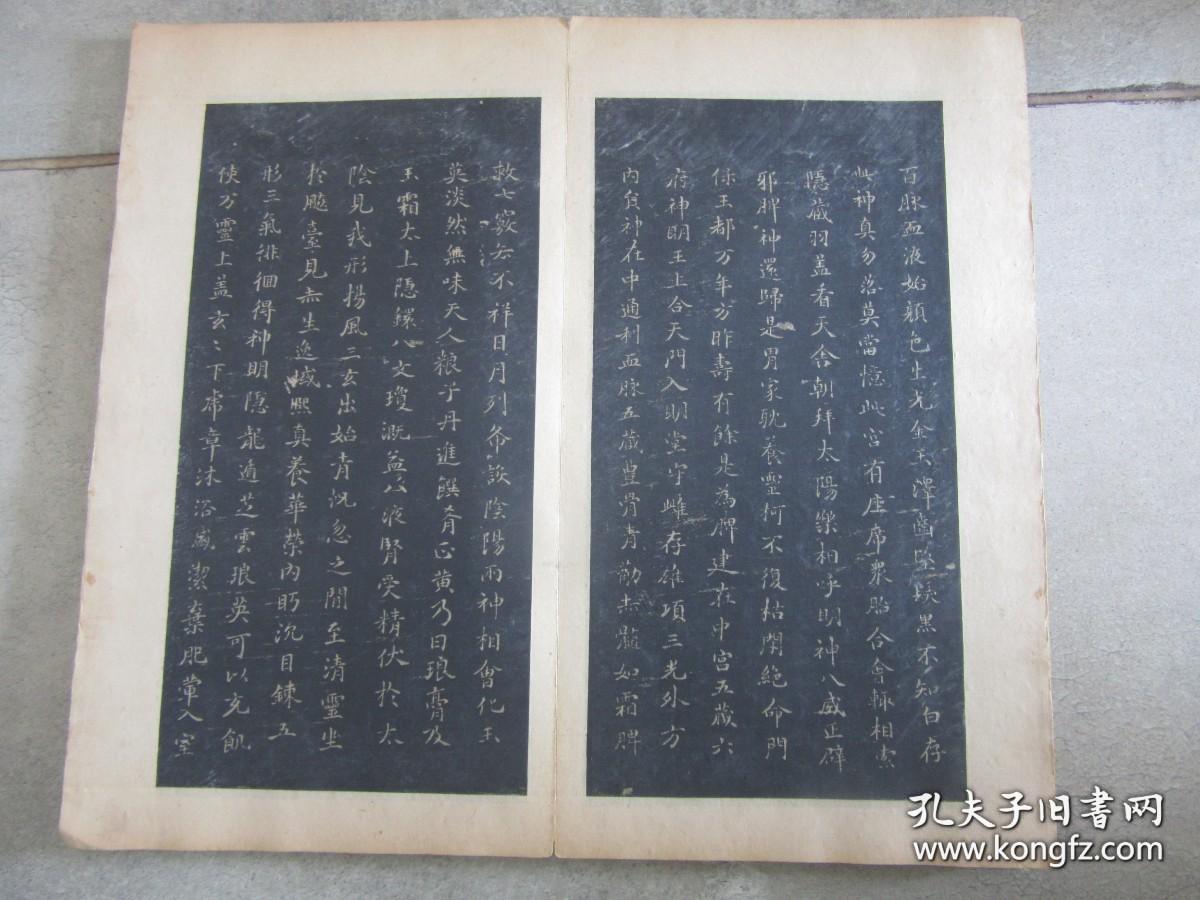 百脉血液始顔色生光金玉澤齒堅髮黑不知白存
此神真勿落莫當憶此宮有座席衆胎合會轉相索
隱藏羽盖看天舍朝拜太陽樂相呼明神八威正辟
邪脾神還歸是胃家耽養靈柯不復枯閇絶命門
保玉都万年方昨壽有餘是為脾建在中宮五藏六
府神明王上合天門入明堂守雌存雄項三光外方
内負神在中通利血脉五藏豊骨青勸赤髓如霜脾
救七竅去不祥日月列布設陰陽兩神相會化玉
英淡然無味天人粮子丹進饌肴正黄乃曰琅膏及
玉霜太上隱鐶八文瓊溉益八液腎受精伏於太
陰見我形揚風三玄出始青怳忽之間至清靈坐
於飈臺見赤生逸域熈真養華榮内盻沉目鍊五
形三氣徘徊得神明隱龍遁芝雲琅英可以充飢
使万靈上盖玄〻下虎章沐浴盛潔棄肥葷入室
孔夫子旧书网
www.kongfz.com